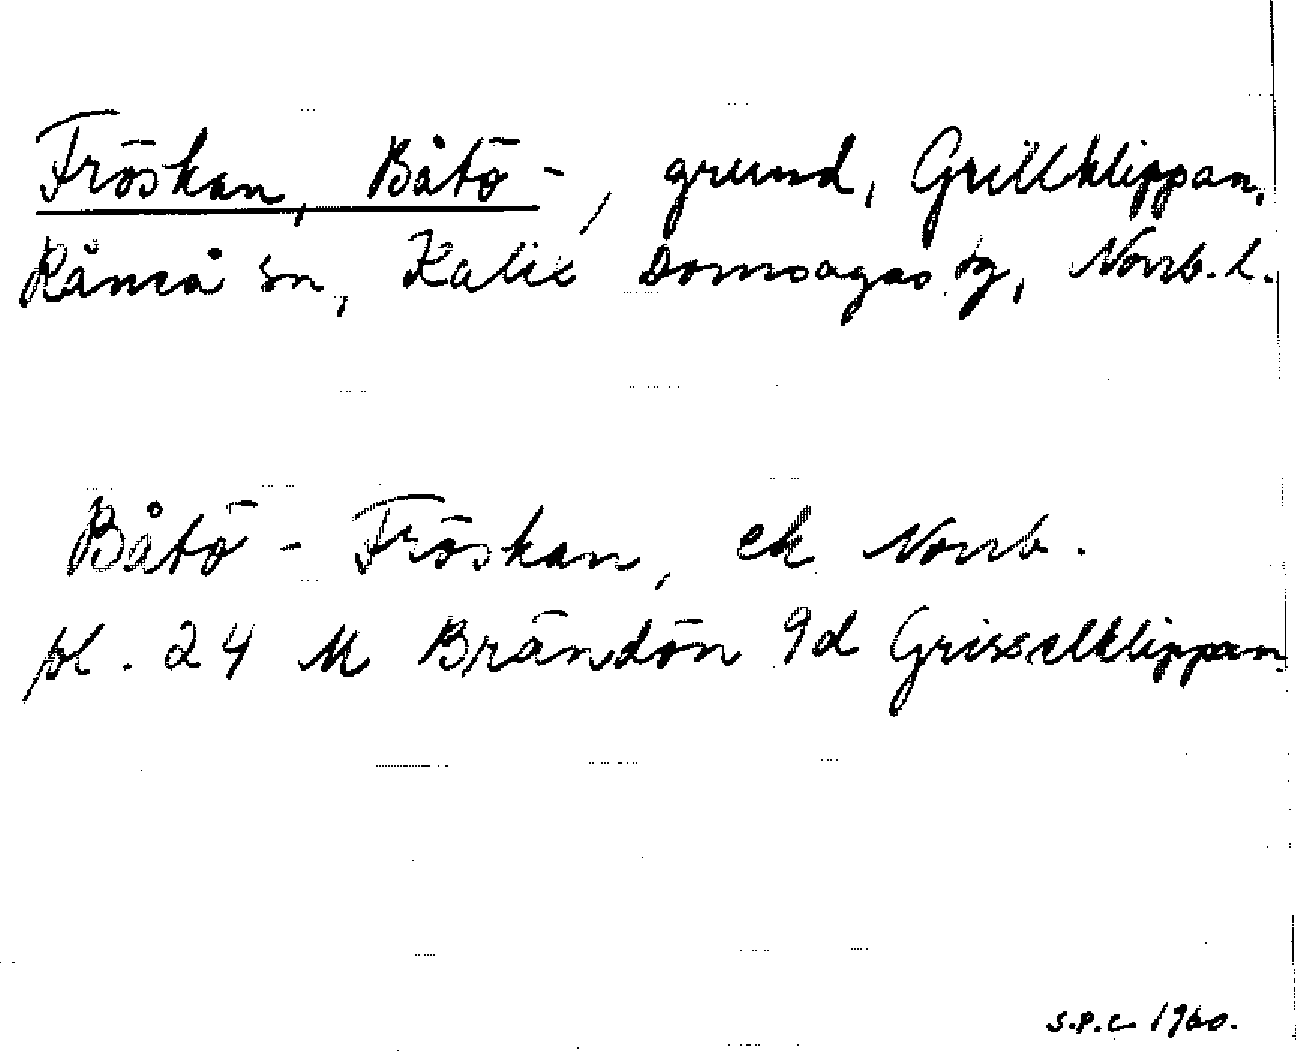 Fröskan, Båtö-, grund, Grillklippan,
Råneå sn, Kalix domsagas tg, Norrb. l.
Båtö - Fröskan, ek Norrb.
bl. 24 M Brändön 9d Grisselklippan
S.P.C. 1960.